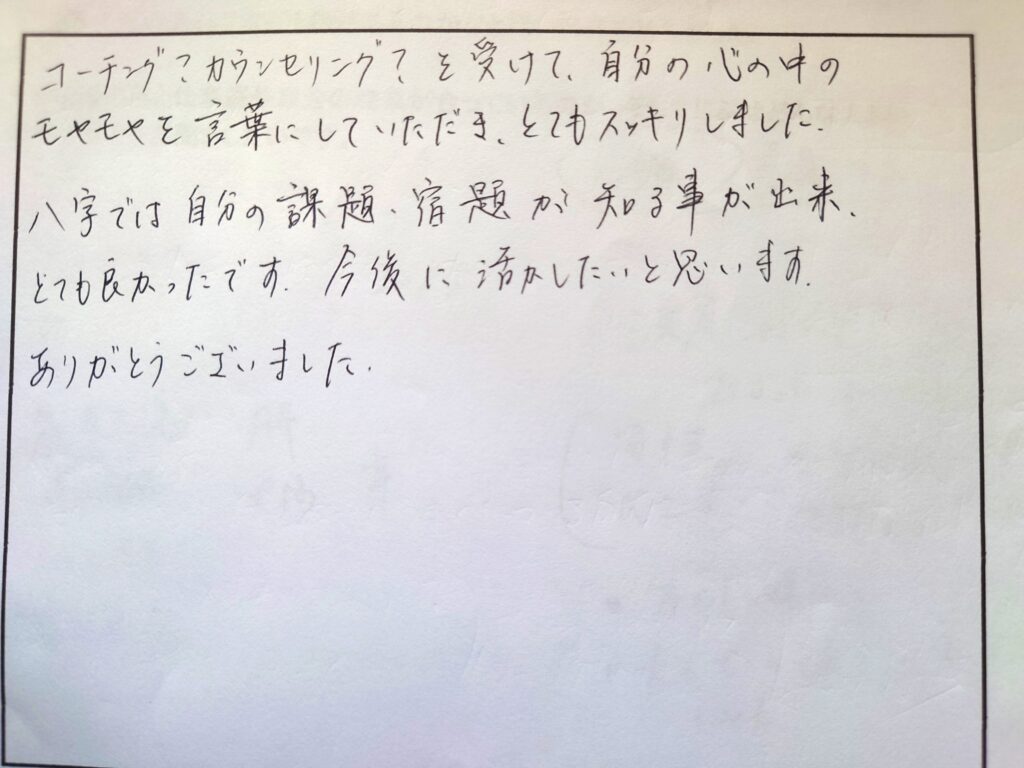 コーチング？カウンセリング？を受けて、自分の心の中の
モヤモヤを言葉にしていただき、とてもスッキリしました.
八字では自分の課題、宿題が知る事が出来、
とても良かったです. 今後に活かしたいと思います.
ありがとうございました.